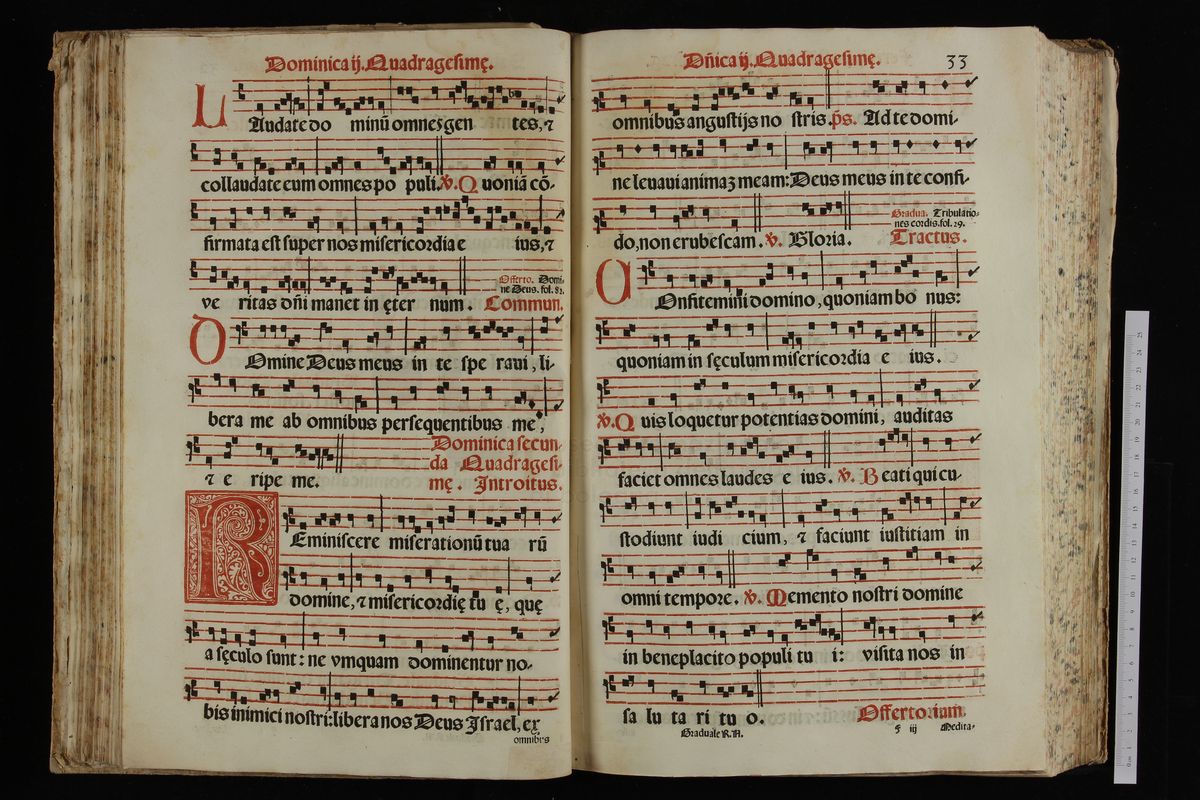 Dominica ij. Quadragesimę.
LAudate do minū omnes gen tes, ⁊
collaudate eum omnes po puli. ℣. Quoniā cō-
firmata est super nos misericordia e ius, ⁊
ve ritas dñi manet in ęter num.
Offerto. Domi-
ne Deus. fol. 82.
Commun.
DOmine Deus meus in te spe raui, li-
bera me ab omnibus persequentibus me,
⁊ e ripe me.
Dominica secun-
da Quadragesi-
mę. Introitus.
REminiscere miserationū tua rū
domine, ⁊ misericordię tu ę, quę
a sęculo sunt: ne vmquam dominentur no-
bis inimici nostri: libera nos Deus Israel, ex
omnibus
Dñica ij. Quadragesimę. 33
omnibus angustijs no stris. ps. Ad te domi-
ne leuaui animaʒ meam: Deus meus in te confi-
do, non erubescam. ℣. Gloria.
Gradua. Tribulatio-
nes cordis. fol. 29.
Tractus.
COnfitemini domino, quoniam bo nus:
quoniam in sęculum misericordia e ius.
℣. Quis loquetur potentias domini, auditas
faciet omnes laudes e ius. ℣. Beati qui cu-
stodiunt iudi cium, ⁊ faciunt iustitiam in
omni tempore. ℣. Memento nostri domine
in beneplacito populi tu i: visita nos in
sa lu ta ri tu o. Offertorium.
Graduale R.A. iij Medita-
0 cm 1 2 3 4 5 6 7 8 9 10 11 12 13 14 15 16 17 18 19 20 21 22 23 24 25